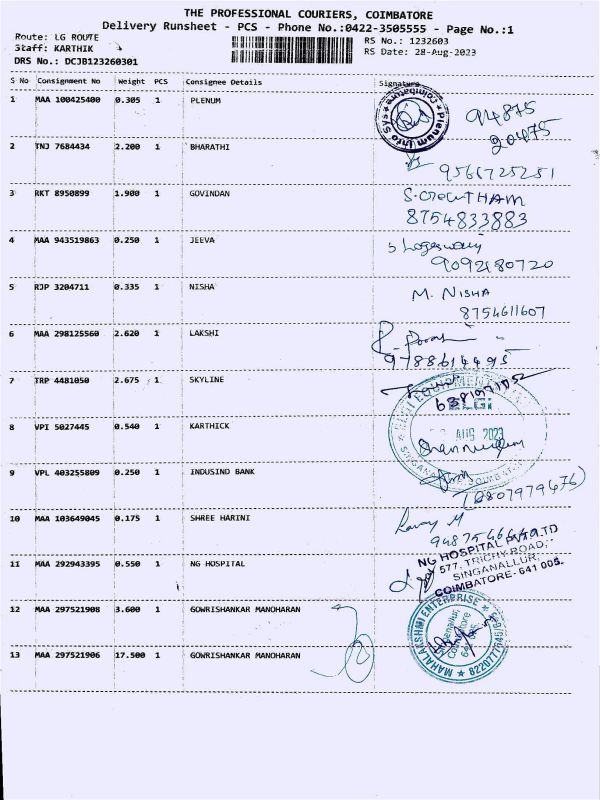 THE PROFESSIONAL COURIERS, COIMBATORE
Delivery Runsheet - PCS - Phone No.:0422-3505555 - Page No.:1
Route: LG ROUTE
RS No.: 1232603
Staff: KARTHIK
RS Date: 28-Aug-2023
DRS No.: DCJB123260301
S No Consignment No Weight PCS Consignee Details Signature
1 MAA 100425400 0.305 1 PLENUM
Plenum Info Sys Coimbatore
94875
20475
2 TNJ 7684434 2.200 1 BHARATHI
9566725251
3 RKT 8950899 1.900 1 GOVINDAN
8754833883
4 MAA 943519863 0.250 1 JEEVA
9092180720
5 RJP 3204711 0.335 1 NISHA
M. NISHA
8754611607
6 MAA 298125560 2.620 1 LAKSHI
7 TRP 4481050 2.675 1 SKYLINE
8 VPI 5027445 0.540 1 KARTHICK
AUG 2023
9 VPL 403255809 0.250 1 INDUSIND BANK
10 MAA 103649045 0.175 1 SHREE HARINI
11 MAA 292943395 0.550 1 NG HOSPITAL
NG HOSPITAL PVT LTD
577, TRICHY ROAD,
SINGANALLUR,
COIMBATORE- 641 005.
12 MAA 297521908 3.600 1 GOWRISHANKAR MANOHARAN
MAHALAKSHMI ENTERPRISE
13 MAA 297521906 17.500 1 GOWRISHANKAR MANOHARAN